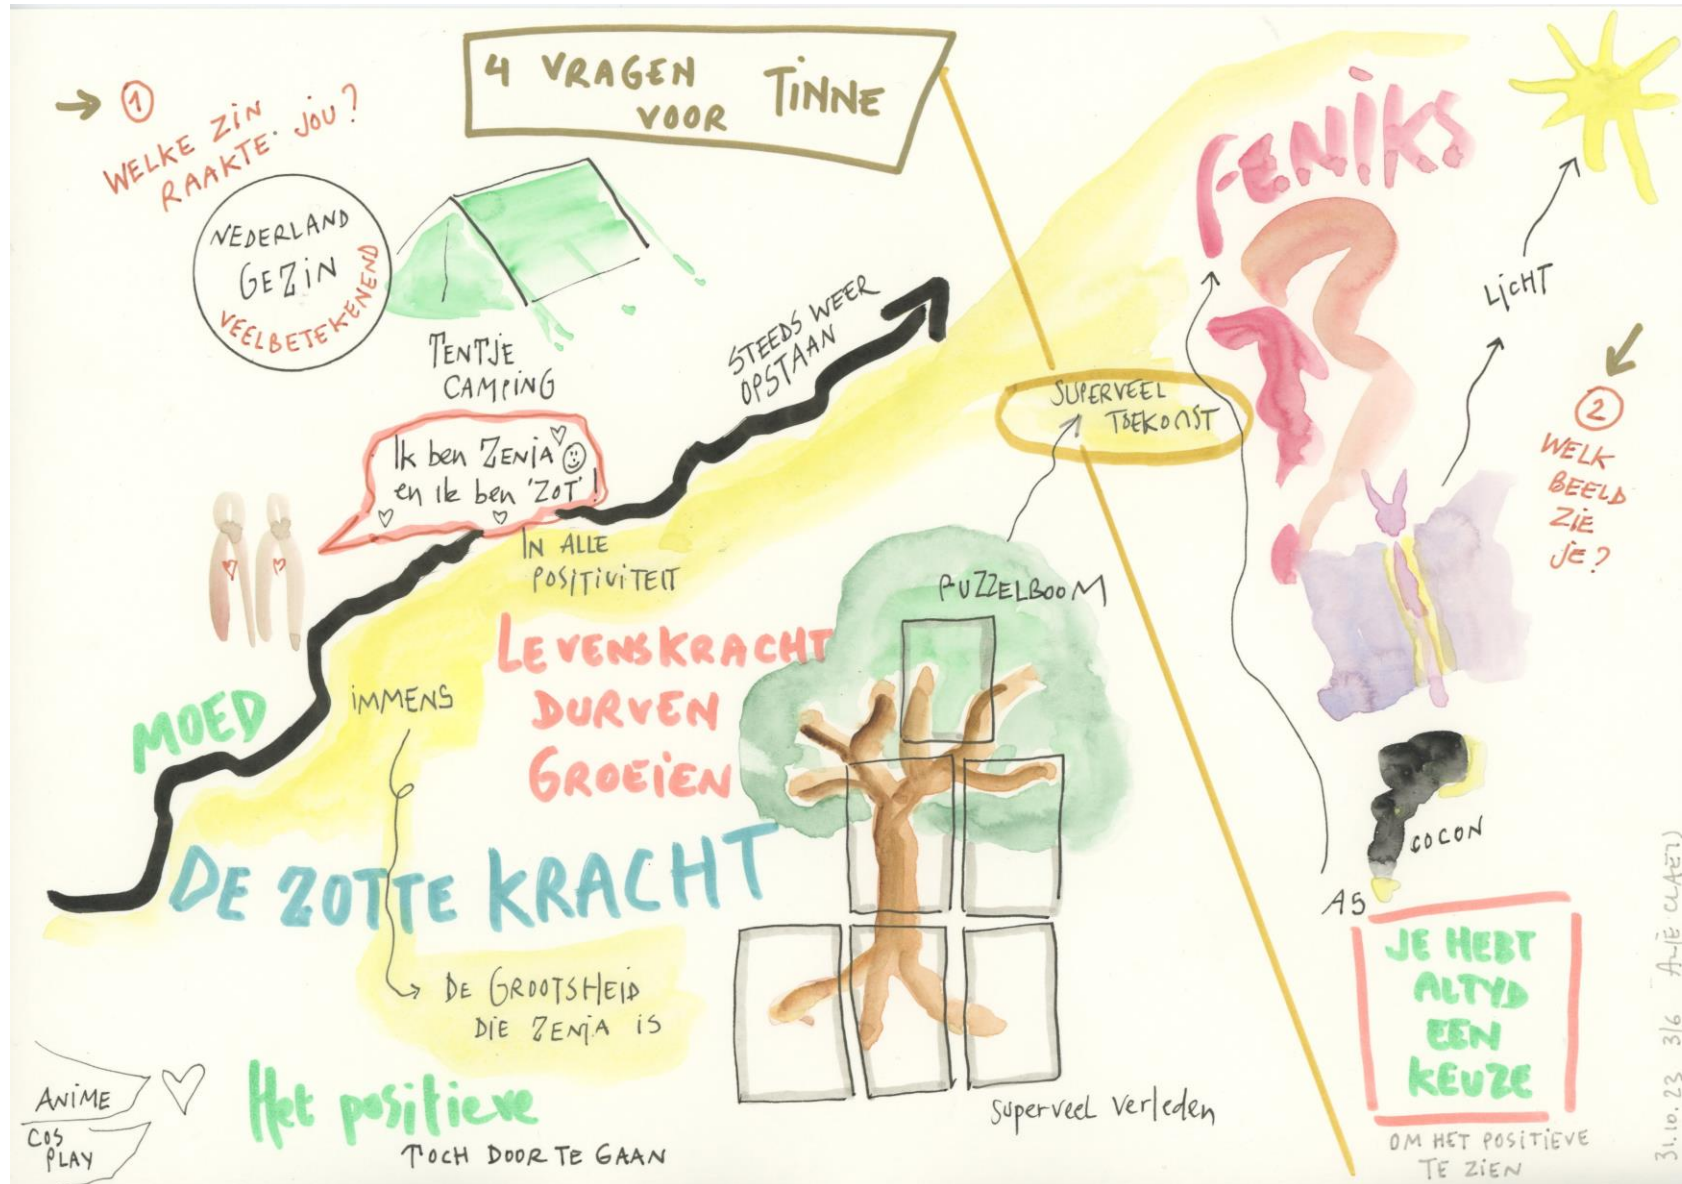 4 VRAGEN
VOOR TINNE
1
WELKE ZIN
RAAKTE JOU?
NEDERLAND
GEZIN
VEELBETEKENEND
TENTJE
CAMPING
Ik ben ZENJA
en ik ben 'ZOT'!
IN ALLE
POSITIVITEIT
STEEDS WEER
OPSTAAN
MOED
IMMENS
LEVENSKRACHT
DURVEN
GROEIEN
DE ZOTTE KRACHT
DE GROOTSHEID
DIE ZENJA IS
ANIME
COS
PLAY
Het positieve
TOCH DOOR TE GAAN
PUZZELBOOM
superveel verleden
SUPERVEEL
TOEKOMST
FENIKS
LICHT
2
WELK
BEELD
ZIE
JE?
COCON
AS
JE HEBT
ALTYD
EEN
KEUZE
OM HET POSITIEVE
TE ZIEN
31.10.23 3/6